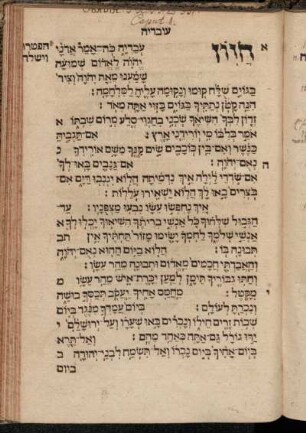 עובדיה
חזון
עבדיה כה אמר אדני
יהוה לאדום שמועה
שמענו מאת יהוה וציר
בגוים שלח קומו ונקומה עליה למלחמה:
הנה קטן נתתיך בגוים בזוי אתה מאד:
זדון לבך השיאך שכני בחגוי סלע מרום שבתו
אמר בלבו מי יורידני ארץ: אם תגביה
כנשר ואם בין כוכבים שים קנך משם אורידך
נאם יהוה: אם גנבים באו לך
אם שדדי לילה איך נדמיתה הלוא יגנבו דים אם
בצרים באו לך הלוא ישאירו עללות:
איך נחפשו עשו נבעו מצפניו: עד
הגבול שלחוך כל אנשי בריתך השיאוך יכלו לך
אנשי שלמך לחמך ישימו מזור תחתיך אין
תבונה בו: הלוא ביום ההוא נאם יהוה
והאבדתי חכמים מאדום ותבונה מהר עשו:
וחתו גבוריך תימן למען יכרת איש מהר עשו
מקטל: מחמס אחיך יעקב תכסך בושה
ונכרת לעולם: ביום עמדך מנגד ביום
שבות זרים חילו ונכרים באו שערו ועל ירושלם
ידו גורל גם אתה כאחד מהם: ואל תרא
ביום אחיך ביום נכרו ואל תשמח לבני יהודה
ביום